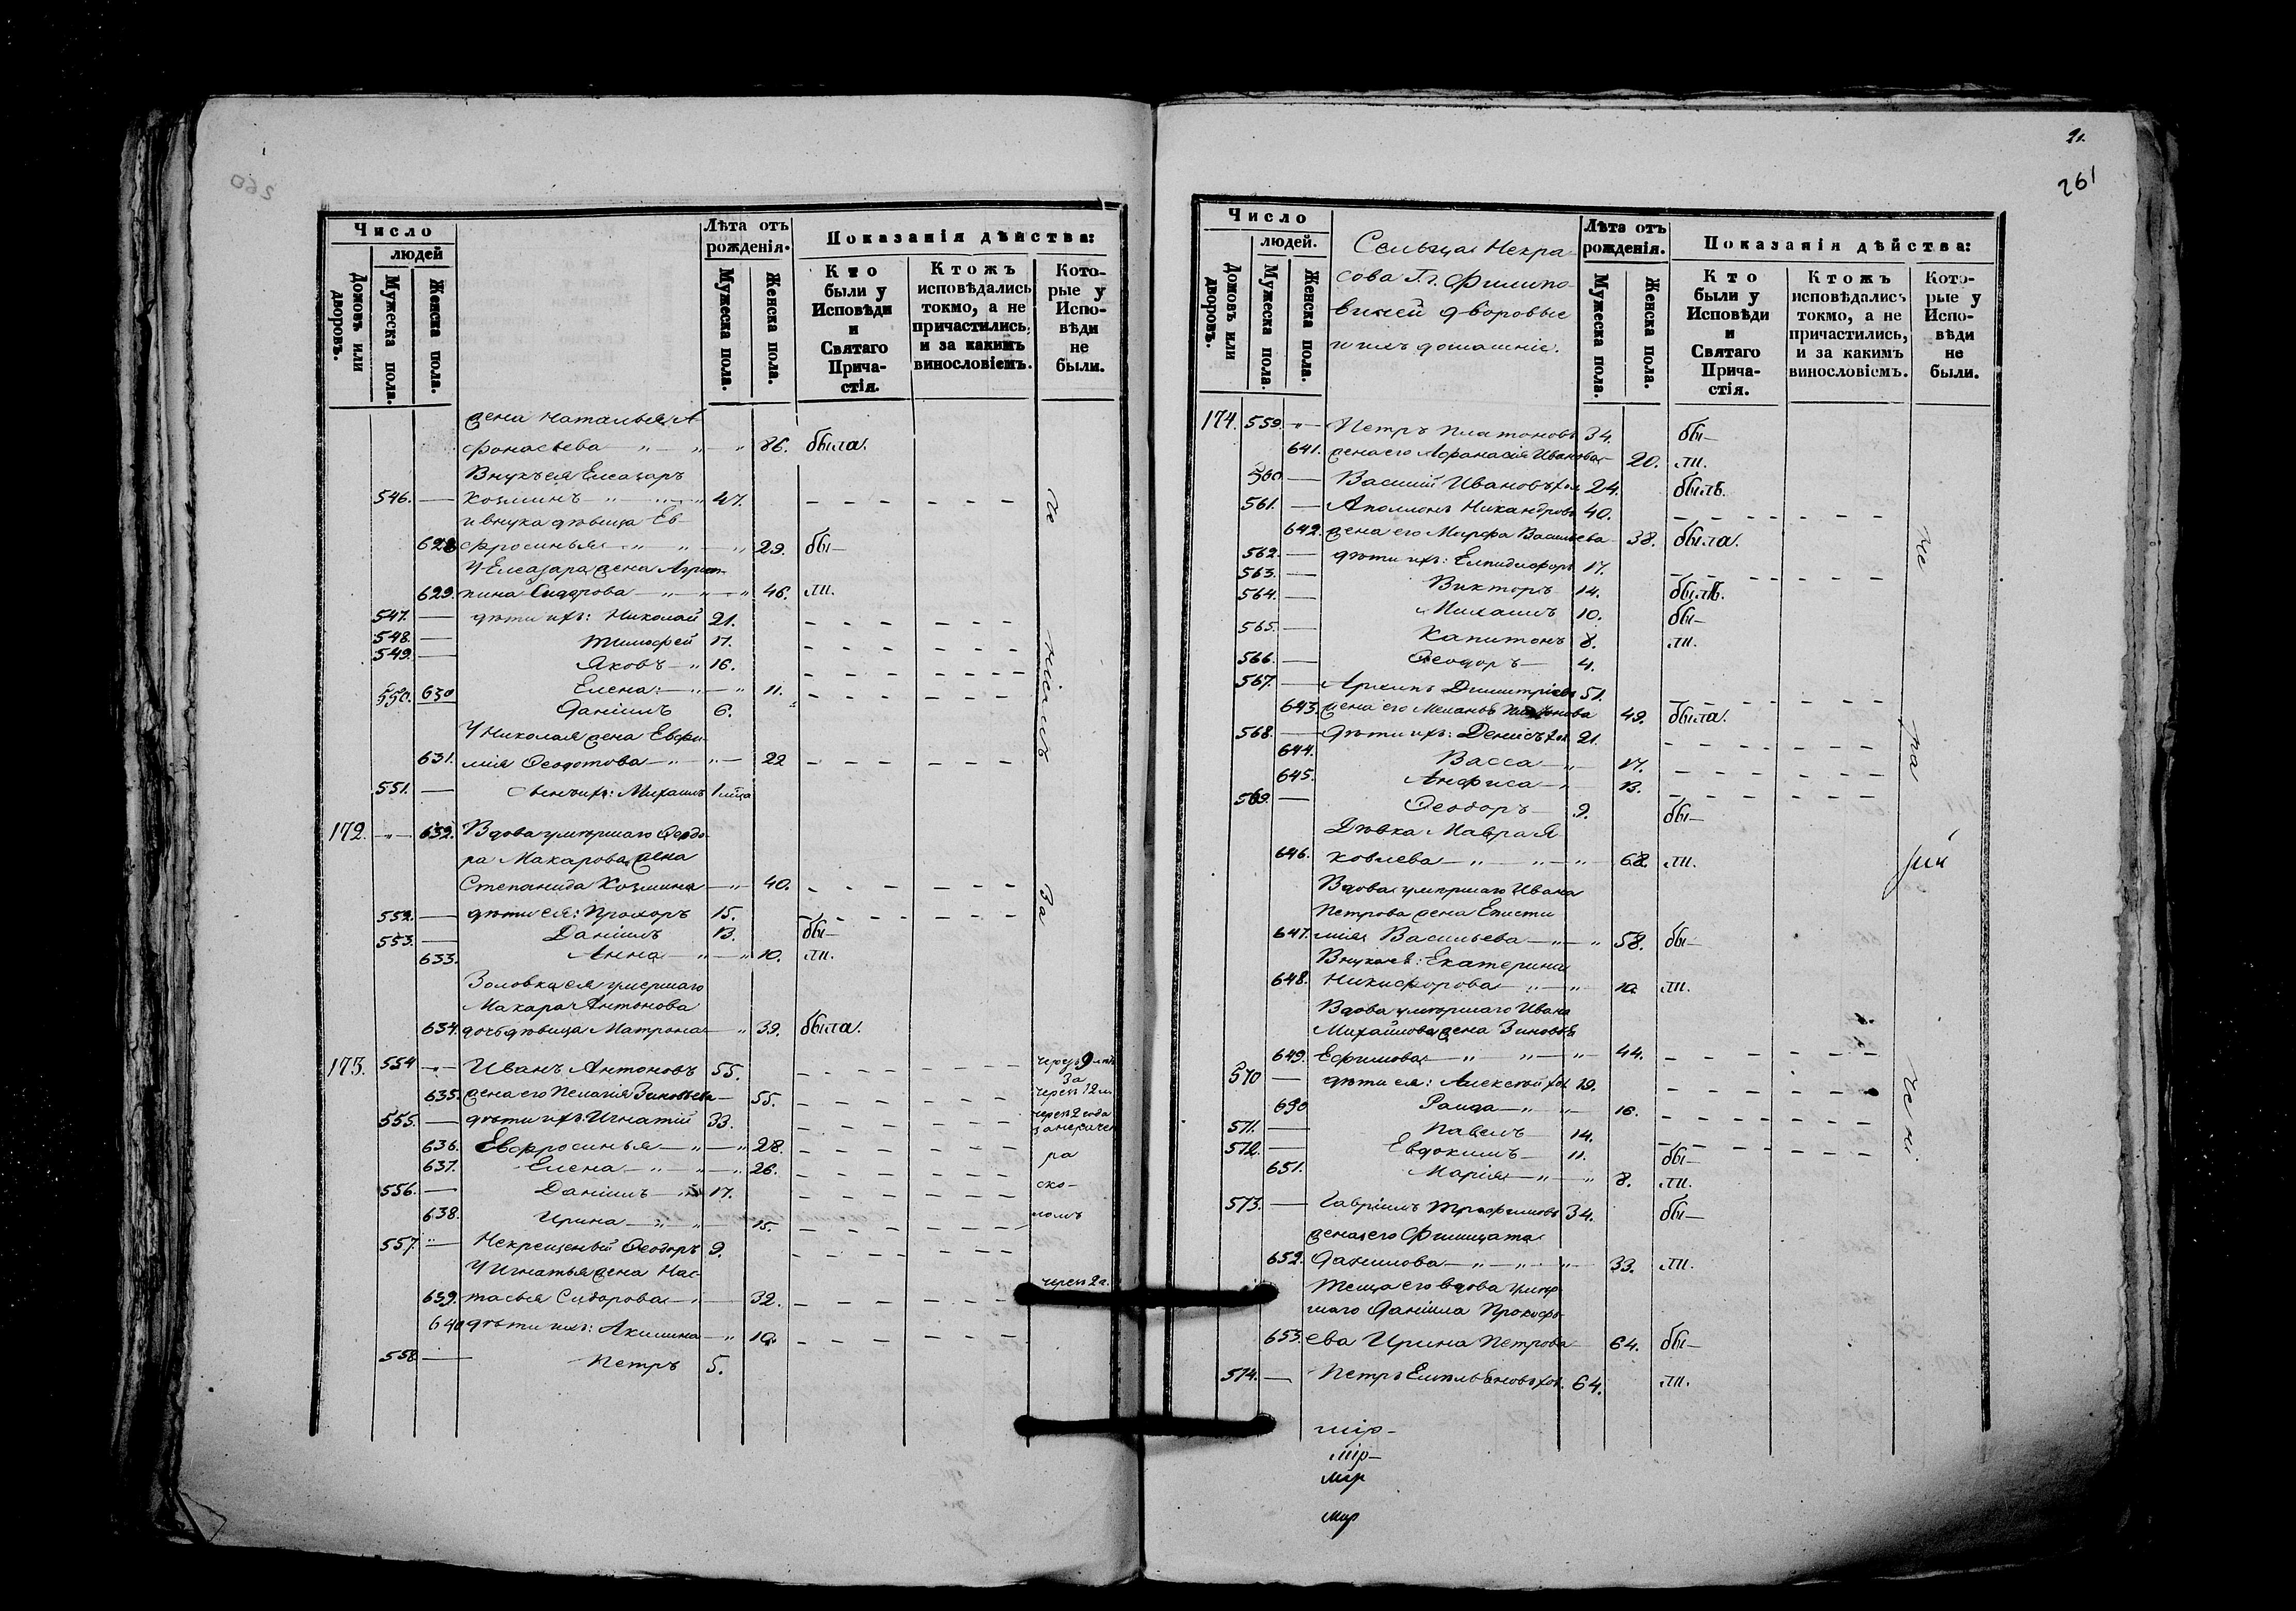 260
Число
людей
Домовъ или дворовъ.
Мужеска пола.
Женска пола.
Лѣта отъ рожденія.
Мужеска пола.
Женска пола.
Показанія дѣйства:
Кто были у Исповѣди и Святаго Прича-стія.
Ктожъ исповѣдались токмо, а не причастились, и за какимъ винословіемъ.
Кото-рые у Испо-вѣди не были.
жена Наталья А
фонасьева 86. была.
Внукъ ея Елеазаръ
546. Козминъ 47.
и внука дѣвица Ев-
628 фросинья 29. бы-
У Елеазара жена Агрип-
629. пина Сидорова 46. ли.
547. дѣти ихъ: Николай 21.
548. Тимофей 17.
549. Яковъ 16.
630 Елена 11.
550. Даніилъ 6.
У Николая жена Евфи-
631. мія Ѳеодотова 22
551. Сынъ ихъ: Михаилъ 1
172. 632. Вдова умершаго Ѳеодо-
ра Макарова жена
Степанида Козмина 40.
552. дѣти ея: Прохоръ 15.
553. Даніилъ 13. бы-
633. Анна 10. ли.
Золовка ея умершаго
Макара Антонова
634. дочь дѣвица Матрона 39. была.
173. 554 Иванъ Антоновъ 55.
635. жена его Пелагія Зиновьева 55.
555. дѣти ихъ: Игнатій 33.
636. Евфросинья 28.
637. Елена 26.
556. Даніилъ 17.
638. Ирина 15.
557. Некрещеный Ѳеодоръ 9.
У Игнатья жена Нас-
639. тасья Сидорова 32.
640 дѣти ихъ: Акилина 10.
558 Петръ 5.
за
ра
ско-
ломъ
21.
261
Число
людей.
Домовъ или дворовъ.
Мужеска пола.
Женска пола.
Сельца Некра-
сова Г. г. Филипо-
вичей дворовые
и ихъ домашніе.
Лѣта отъ рожденія.
Мужеска пола.
Женска пола.
Показанія дѣйства:
Кто были у Исповѣди и Святаго Прича-стія.
Ктожъ исповѣдались токмо, а не причастились, и за какимъ винословіемъ.
Кото-рые у Испо-вѣди не были.
174. 559. Петръ Платоновъ 34. бы-
641. жена его Афанасія Иванова 20. ли.
560. Василій Ивановъ хол. 24. былъ.
561. Аполлонъ Никандровъ 40.
642. жена его Марфа Васильева 38. была.
562. дѣти ихъ: Елпидифоръ 17.
563. Викторъ 14. былъ.
564. Михаилъ 10. бы-
565. Капитонъ 8. ли.
566. Ѳеодоръ 4.
567. Архипъ Димитріевъ 51.
643. жена его 49. была.
568. Дѣти ихъ: Денисъ хол. 21.
644. Васса 17.
645. Анфиса 13.
569. Ѳеодоръ 9. бы-
Дѣвка Мавра Я
646. ковлева 68. ли.
Вдова умершаго Ивана
Петрова жена Еписти
647. мія Васильева 58. бы-
Внука ей: Екатерина
648. Никифорова 10. ли.
Вдова умершаго Ивана
Михайлова жена Зиновія
649. Ефимова 44.
570 дѣти ея: Алексѣй хол. 19.
650 Раида 16.
571. Павелъ 14.
572. Евдокимъ 11. бы-
651. Марія 8. ли.
573. Гавріилъ Трофимовъ 34. бы-
жена его Филицата
652. Данилова 33. ли.
Теща его вдова умер
шаго Даніила Прокофь-
653. ева Ирина Петрова 64. бы-
574. Петръ Емельяновъ хол. 64. ли.